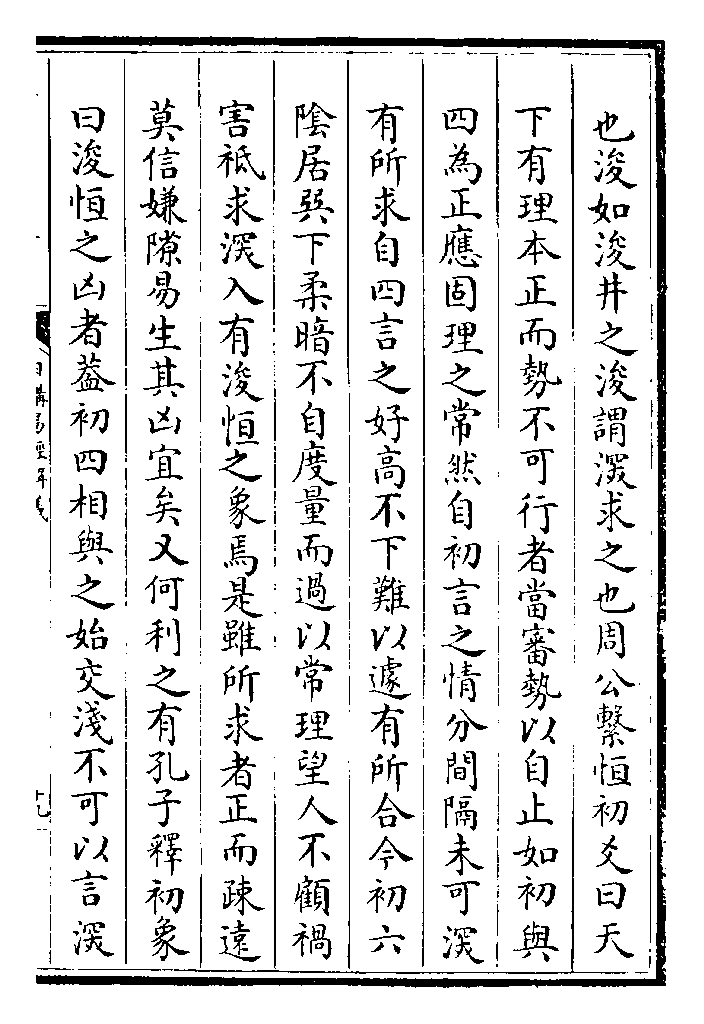 也浚如浚井之浚謂深求之也周公繫恒初爻曰天
下有理本正而勢不可行者當審勢以自止如初與
四為正應固理之常然自初言之情分間隔未可深
有所求自四言之好高不下難以遽有所合今初六
陰居巽下柔暗不自度量而過以常理望人不顧禍
害祗求深入有浚恒之象焉是雖所求者正而疎遠
莫信嫌隙易生其凶宜矣又何利之有孔子釋初象
曰浚恒之凶者葢初四相與之始交淺不可以言深
日講易經解義
十九